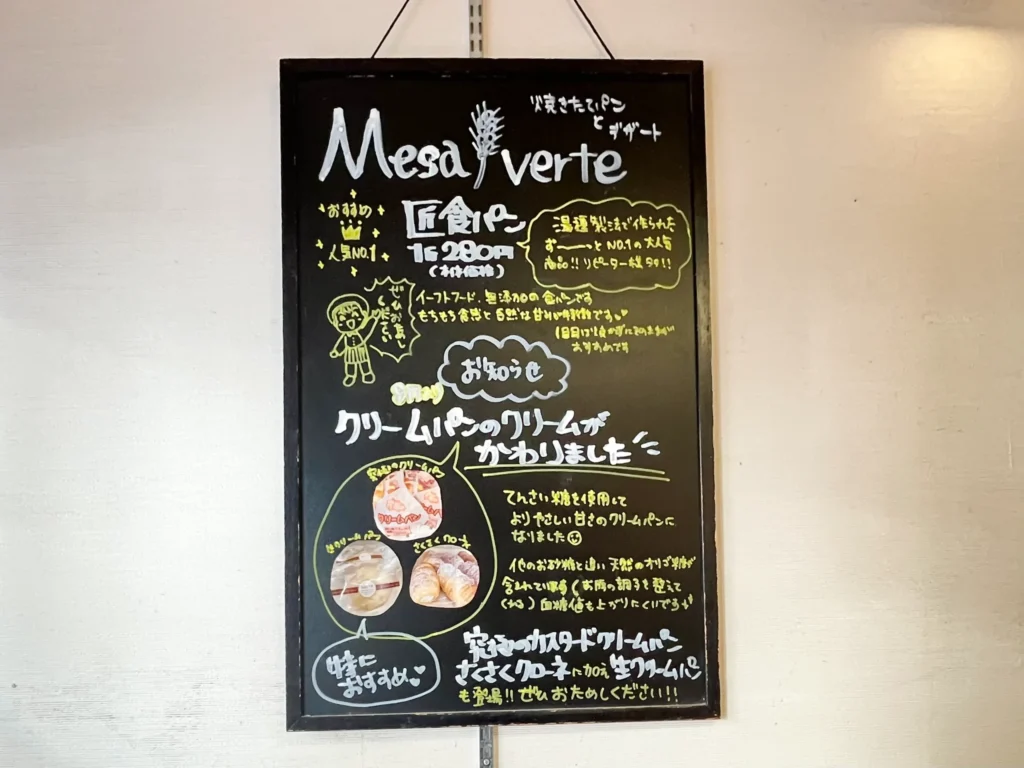 焼きたてパン
と
デザート
Mesa verte
おすすめ
人気NO.1
匠食パン
280円
(本体価格)
湯種製法で作られた
ず――っとNO.1の大人気
商品!!リピーター様多カ!!
ぜひお試し
ください
イーストフード、無添加の食パンです
もちもち食感と自然な甘みが特徴です。♥
1日目は焼かずにそのままが
おすすめです
お知らせ
より
クリームパンのクリームが
かわりました
究極のクリームパン
クリームパン
生クリームパン
さくさくクローネ
てんさい糖を使用して
よりやさしい甘さのクリームパンに
なりました
他のお砂糖と違い天然のオリゴ糖が
含まれています(お腹の調子を整えて
くれる)血糖値も上がりにくいです
特に
おすすめ♥
究極のカスタードクリームパン
さくさくクローネに加え生クリームパン
も登場!!ぜひおためしください!!